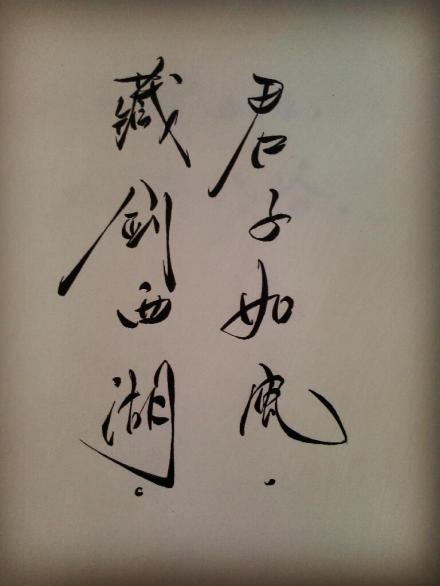 君子如风.
藏剑西湖。